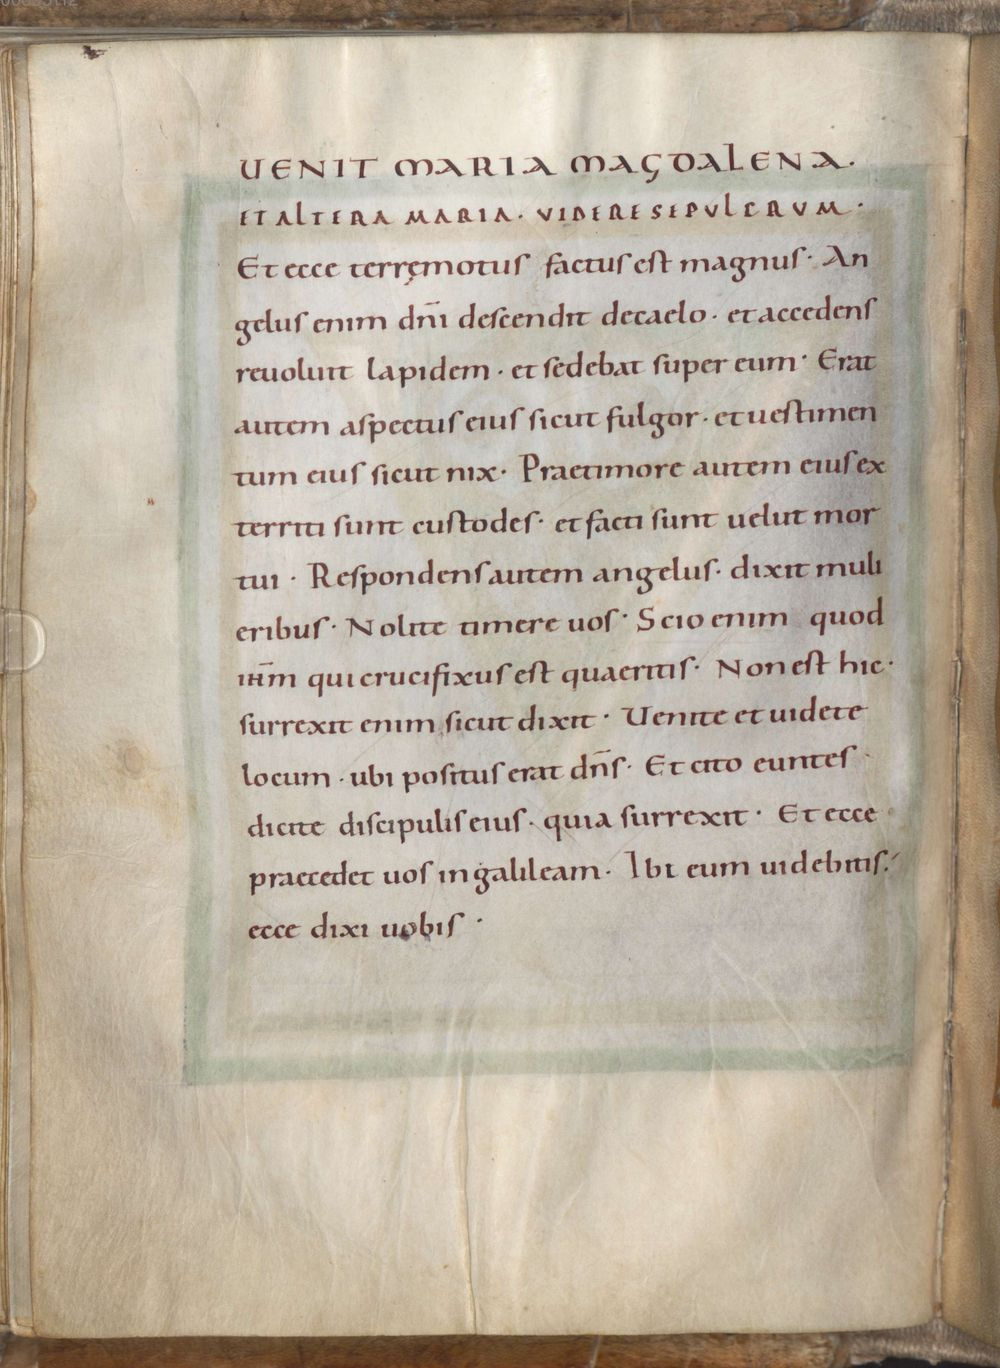 UENIT MARIA MAGDALENA.
ET ALTERA MARIA · VIDERE SEPVLCRVM ·
Et ecce terręmotus factus est magnus · An
gelus enim dn̄i descendit decaelo · et accedens
reuoluit lapidem · et sedebat super eum · Erat
autem aspectus eius sicut fulgor · et uestimen
tum eius sicut nix · Prae timore autem eius ex
territi sunt custodes · et facti sunt uelut mor
tui · Respondens autem angelus · dixit muli
eribus · Nolite timere uos · Scio enim quod
ih̄m qui crucifixus est quaeritis · Non est hic ·
surrexit enim sicut dixit · Uenite et uidete
locum · ubi positus erat dn̄s · Et cito euntes ·
dicite discipulis eius · quia surrexit · Et ecce
praecedet uos in galileam · Ibi eum uidebitis ·
ecce dixi uobis ·